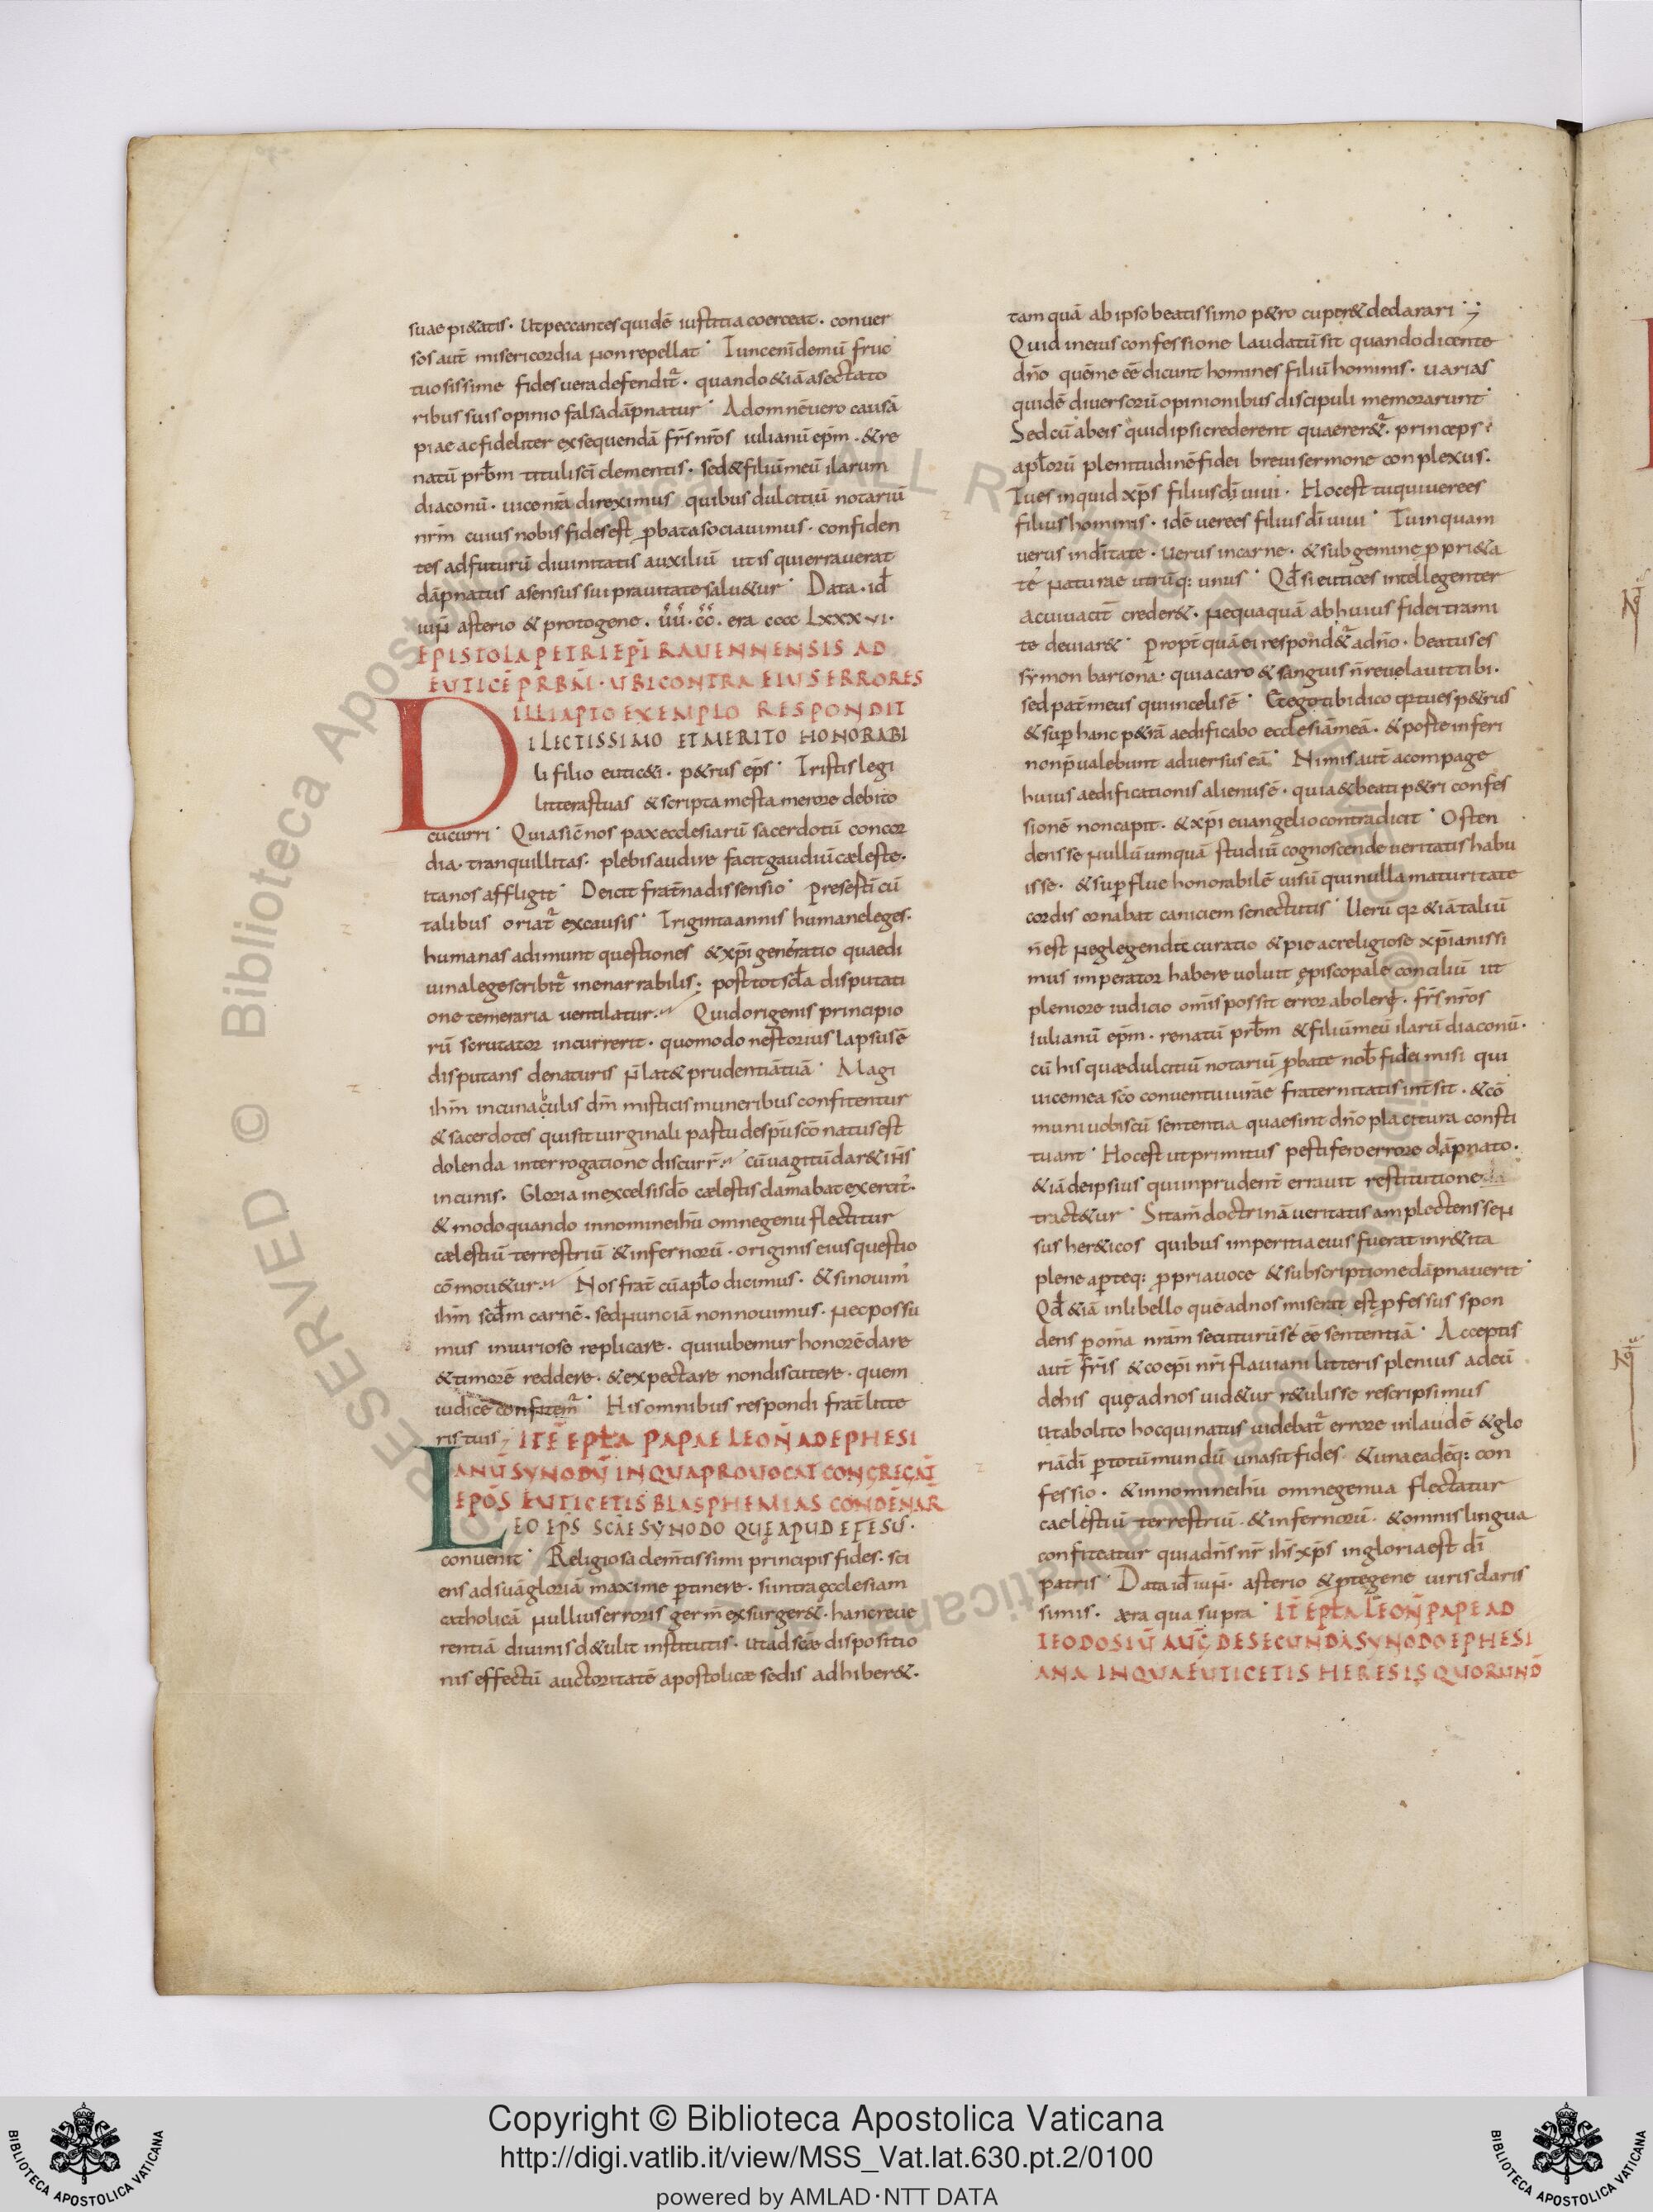 suae pi&atis. Ut peccantes quidē iustitia coerceat. conuer
sos aut̄ misericordia non repellat. Tunc enī demū fruc
tuosissime fides uera defendit̄. quando &iā a sectato
ribus suis opinio falsa dāpnatur. Ad omnē uero causā
piae ac fideliter exsequendā fr̄s nr̄os iulianū ep̄m. & re
natū prb̄m tituli sc̄i clementis. sed & filiū meū ilarum
diaconū. uice nr̄a direximus quibus dulcitiū notariū
nr̄m cuius nobis fides est p̱bata sociauimus. confiden
tes adfuturū diuinitatis auxiliū ut is qui errauerat
dāpnatus a sensus sui prauitate salu&ur. Data. id̄
iuñ asterio & protogene. ūū. c̄c̄. era cccc LXXXVI.
EPISTOLA PETRI EP̄I RAUENNENSIS AD
EUTICĒ PRB̄M. UBI CONTRA EIUS ERRORES
ILLI APTO EXEMPLO RESPONDIT
DILECTISSIMO ET MERITO HONORABI
li filio eutic&i. p&rus ep̄s. Tristis legi
litteras tuas & scripta mesta merore debito
cucurri. Quia sic̄ nos pax ecclesiarū sacerdotū concor
dia. tranquillitas. plebis audire facit gaudiū cæleste.
ita nos affligit. Deicit frat̄na dissensio. preserti cū
talibus oriat̄ ex causis. Triginta annis humane leges.
humanas adimunt questiones & xp̄i generatio quae di
uina lege scribit̄ inenarrabilis. post tot scl̄a disputati
one temeraria uentilatur. Quid origenis principio
rū scrutator incurrerit. quomodo nestorius lapsus ē
disputans de naturis ñ lat& prudentiā tuā. Magi
ihm̄ in cunabulis dm̄ misticis muneribus confitentur
& sacerdotes qui sit uirginali partu de sp̄u sc̄o natus est
dolenda interrogatione discurr̄. cū uagitū dar& ih̄s
in cunis. Gloria in excelsis d̄o cælestis clamabat exercit̄.
& modo quando in nomine ih̄u omne genu flectitur
cælestiū terrestriū & infernorū. originis eius questio
cōmou&ur. Nos frat̄ cū apl̄o dicimus. & si nouim̄
ihm̄ scd̄m carnē. sed nunc iā non nouimus. nec possu
mus iniuriose replicare. qui iubemur honorē dare
& timorē reddere. & expectare non discutere. quem
iudicē confitem̄. His omnibus respondi frat̄ litte
ris tuis ITĒ EPL̄A PAPAE LEOÑ AD EPHESI
ANŪ SYNODŪ IN QUA PROUOCAT CONGREGAT̄
EPŌS EUTICETIS BLASPHEMIAS CONDENAR̄
LEO EP̄S SC̄AE SYNODO QUĘ APUD EFESŪ.
conuenit. Religiosa clem̄tissimi principis fides. sci
ens ad suā gloriā maxime p̱tinere. si intra ęcclesiam
catholicā nullius erroris germ̄ exsurger&. hanc reue
rentiā diuinis d&ulit institutis. ut ad sc̄ae dispositio
nis effectū auctoritatē apostolicæ sedis adhiber&.
tam quā ab ipso beatissimo p&ro cuper& declarari
Quid in eius confessione laudatū sit quando dicente
dn̄o quē me ēē dicunt homines filiū hominis. uarias
quidē diuersorū opinionibus discipuli memorarunt
Sed cū ab eis quid ipsi crederent quaerer&. princeps
apl̄orū plenitudinē fidei breui sermone conplexus.
Tu es inquid xp̄s filius dī uiui. Hoc est tu qui uere es
filius hominis. idē uere es filius dī uiui. Tu inquam
uerus in dītate. uerus in carne. & sub geminę p̱pri&a
te naturae utrūq: unus. Qd̄ si eutices intellegenter
ac uiuacit̄ creder&. nequaquā ab huius fidei trami
te deuiar&. propt̄ quā ei respond&̄ a dn̄o. beatus es
symon bariona. quia caro & sanguis ñ reuelauit tibi.
sed pat̄ meus qui in celis ē. Et ego tibi dico qr tu es p&rus
& sup̱ hanc p&rā aedificabo ecclesiā meā. & porte inferi
non p̄ualebunt aduersus eā. Nimis aut̄ a compage
huius aedificationis alienus ē. quia & beati p&ri confes
sionē non capit. & xp̄i euangelio contradicit. Osten
dens se nullū umquā studiū cognoscende ueritatis habu
isse. & sup̱flue honorabilē uisū qui nulla maturitate
cordis ornabat caniciem senectutis. Uerū qr &iā taliū
ñ est neglegende curatio & pie ac religiose xp̄ianissi
mus imperator habere uoluit ępiscopale conciliū ut
pleniore iudicio om̄is possit error aboleri. fr̄s nr̄os
Iulianū ep̄m. renatū prb̄m & filiū meū ilarū diaconū.
cū his quæ dulcitiū notariū p̱bate nob̄ fidei misi qui
uice mea sc̄o conuentui ur̄ae fraternitatis int̄sit. & cō
muni uobiscū sententia quae sint dn̄o placitura consti
tuant. Hoc est ut primitus pestifero errore dāpnato.
& iā de ipsius qui inprudent̄ errauit restitutione
tract&ur. Si tam̄ doctrinā ueritatis amplectens sen
sus her&icos quibus imperitia eius fuerat inr&ita
plene aperteq: p̱pria uoce & subscriptione dāpnauerit
Qd̄ &iā in libello quē ad nos miserat est p̱fessus spon
dens p̱ om̄a nr̄am secuturū sé ēē sententiā. Acceptis
aut̄ fr̄is & coep̄i nr̄i flauiani litteris plenius ad eū
de his quę ad nos uid&ur r&ulisse rescripsimus
ut abolito hoc qui natus uidebat̄ errore in laudē & glo
riā dī p̱ totū mundū una sit fides & una eadēq: con
fessio. & in nomine ih̄u omne genua flectatur
caelestiū terrestriū & infernorū. & omnis lingua
confiteatur quia dn̄s nr̄ ih̄s xp̄s in gloria est dī
patris. Data id̄ iuñ. asterio & p̱tegene uiris claris
simis. æra qua supra. IT̄ EPL̄A LEOÑ PAPE AD
TEODOSIŪ AUḠ DE SECUNDA SYNODO EPHESI
ANA IN QUA EUTICETIS HERESIS QUORUND̄
Copyright © Biblioteca Apostolica Vaticana
http://digi.vatlib.it/view/MSS_Vat.lat.630.pt.2/0100
powered by AMLAD·NTT DATA
BIBLIOTECA APOSTOLICA VATICANA
BIBLIOTECA APOSTOLICA VATICANA